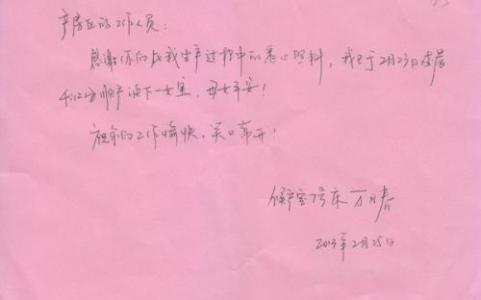 产房区的工作人员:
感谢你们在我生产过程中的悉心照料,我已于2月23日凌晨
顺产诞下一女宝,母女平安!
祝你们工作愉快,笑口常开!
待产室 号床 万日春
2013年2月25日